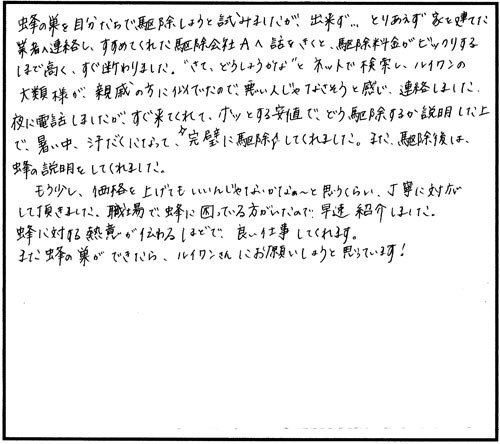 蜂の巣を自分たちで駆除しようと試みましたが、出来ず… とりあえず家を建てた
業者へ連絡し、すすめてくれた駆除会社Aへ話をきくと、駆除料金がビックリする
ほど高く、すぐ断わりました。"さて、どうしょうかな"とネットで検索し、ルイワンの
大類様が、親戚の方に似てたので、悪い人じゃなさそうと感じ、連絡しました。
夜に電話しましたが、すぐ来てくれて、ホッとする安値で、どう駆除するか説明した上
で、暑い中、汗だくになって、"完璧"に駆除してくれました。また、駆除後は、
蜂の説明をしてくれました。
もう少し、価格を上げてもいいんじゃないかなぁ〜と思うくらい、丁寧に対応
して頂きました。職場で蜂に困っている方がいたので、早速紹介しました。
蜂に対する熱意が伝わるほどで、良い仕事してくれます。
また蜂の巣ができたら、ルイワンさんにお願いしようと思っています!